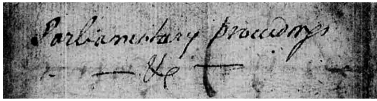 Parliamentary proceedings
&c